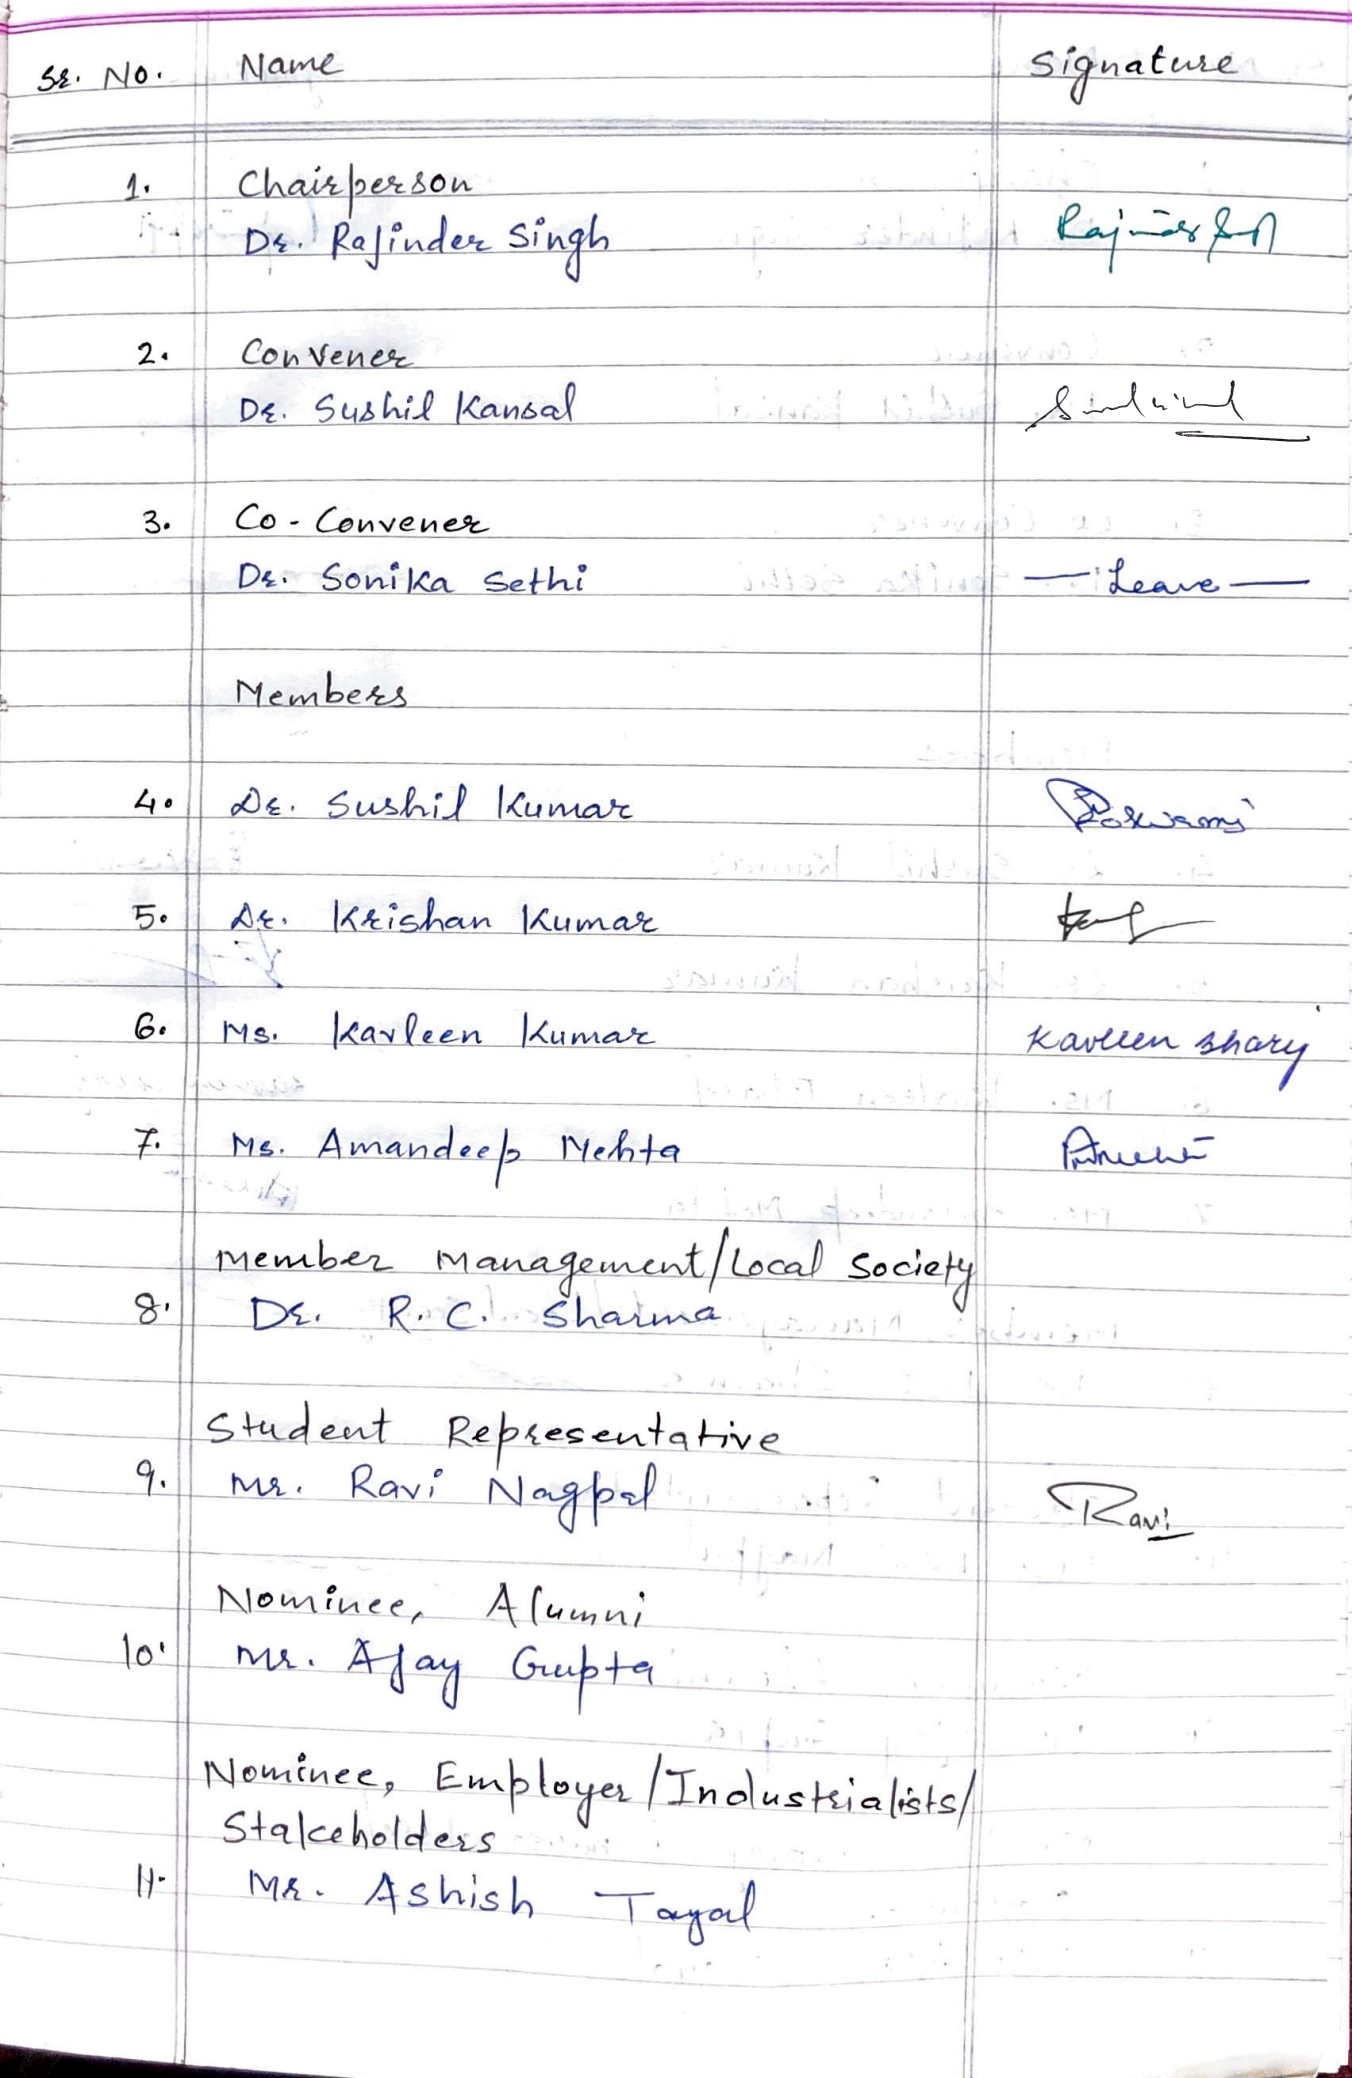 Sr. No. Name Signature
1. Chairperson
Dr. Rajinder Singh
2. Convener
Dr. Sushil Kansal
3. Co-Convener
Dr. Sonika Sethi — Leave —
Members
4. Dr. Sushil Kumar
5. Dr. Krishan Kumar
6. Ms. Kavleen Kumar Kavleen
7. Ms. Amandeep Mehta
Member Management/Local Society
8. Dr. R. C. Sharma
Student Representative
9. Mr. Ravi Nagpal Ravi
Nominee, Alumni
10. Mr. Ajay Gupta
Nominee, Employer/Industrialists/
Stakeholders
11. Mr. Ashish Tayal